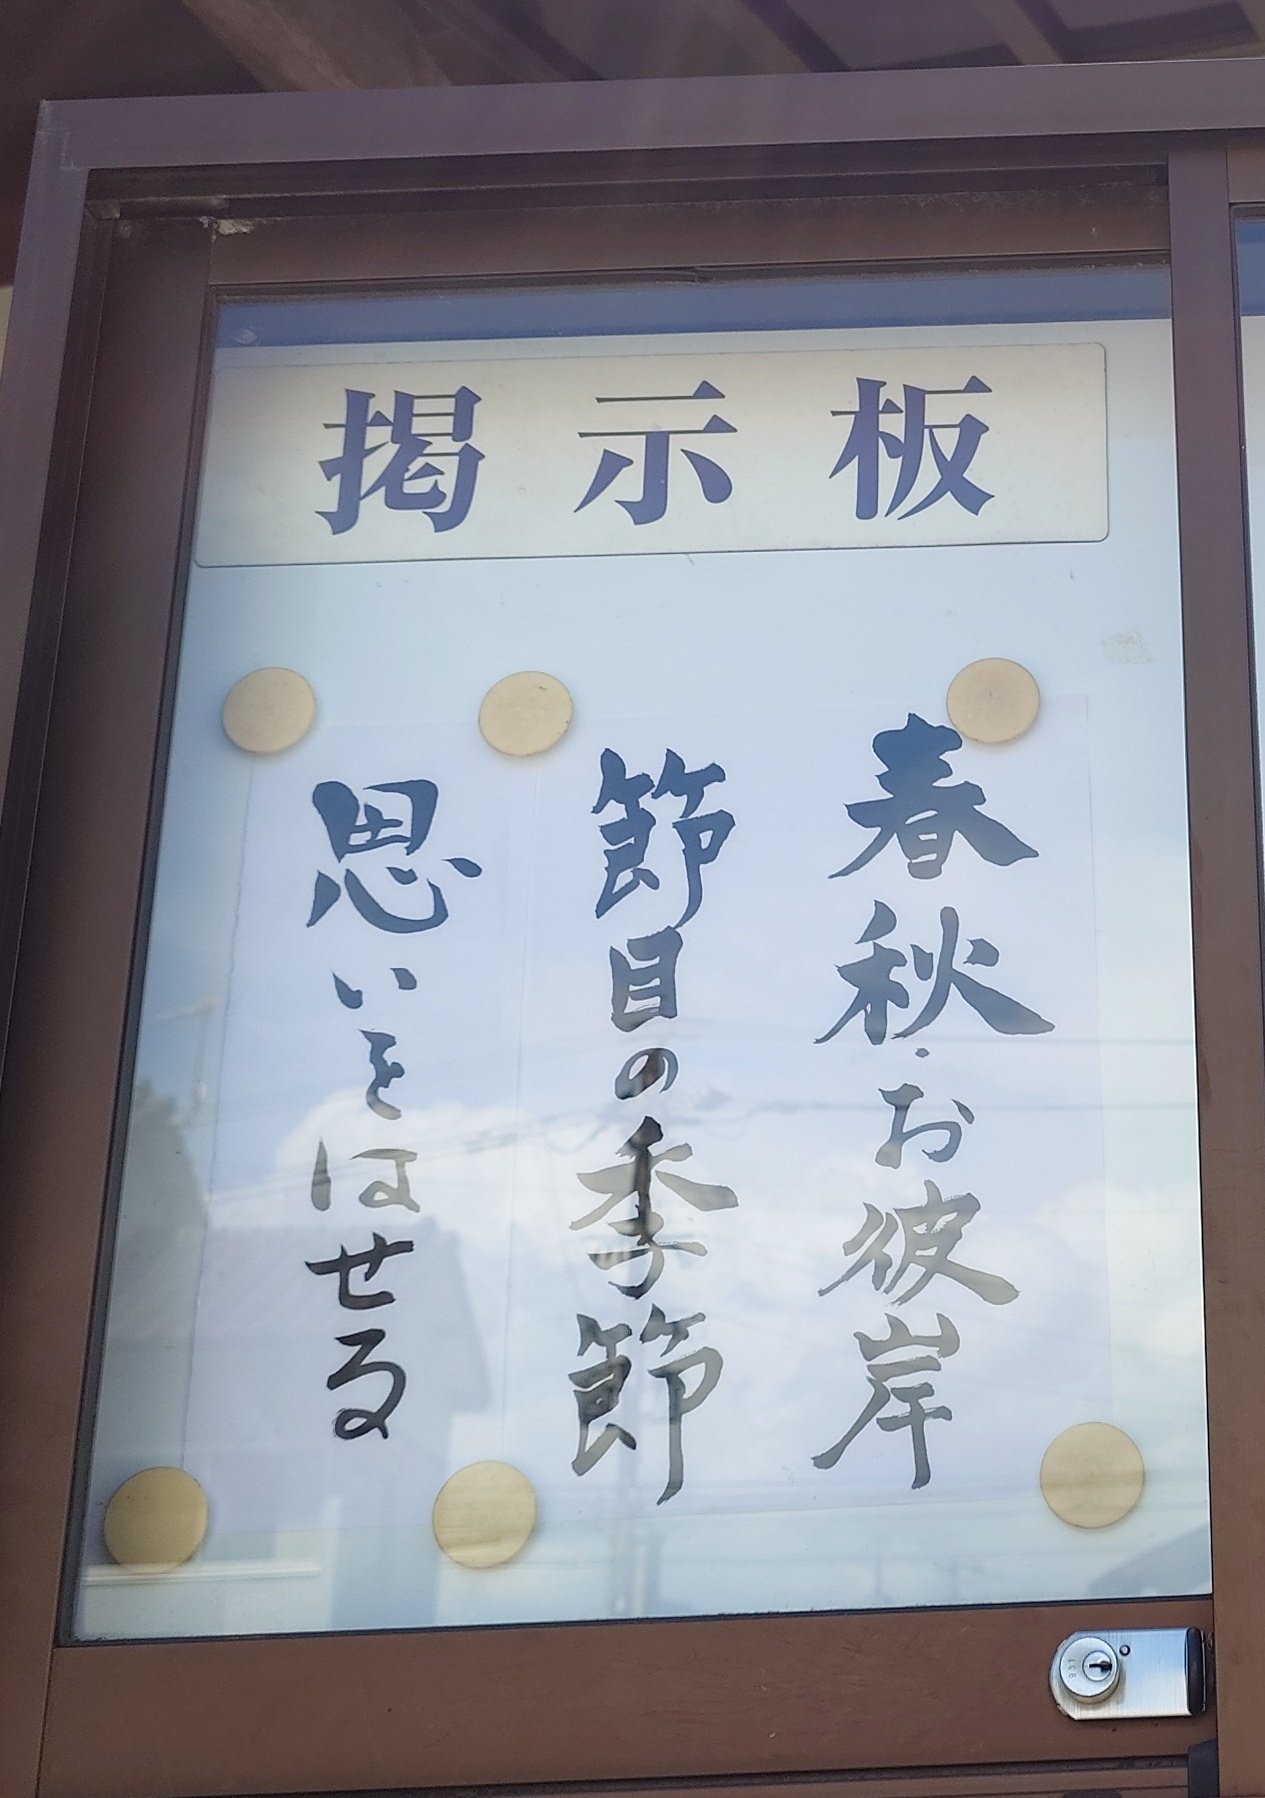 掲示板
春秋・お彼岸
節目の季節
思いをはせる